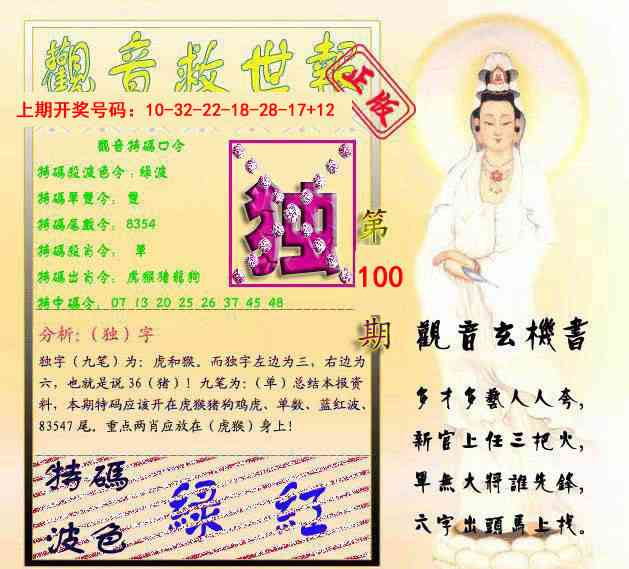 觀音救世報
正版
上期开奖号码：10-32-22-18-28-17+12
觀音特碼口令
特碼殺波色令：綠波
特碼單雙令： 雙
特碼尾數令：8354
特碼殺肖令： 單
特碼出肖令：虎猴猪龍狗
特中碼令：07 13 20 25 26 37 45 48
独
第
100
期
分析：（独）字
独字（九笔）为：虎和猴。而独字左边为三，右边为
六，也就是说 36（猪）！九笔为：（单）总结本报资
料，本期特码应该开在虎猴猪狗鸡虎、单数、蓝红波、
83547 尾。重点两肖应放在（虎猴）身上！
特碼
波色
綠 紅
觀音玄機書
多才多藝人人夸，
新官上任三把火，
單無大將誰先鋒，
六字出頭馬上找。